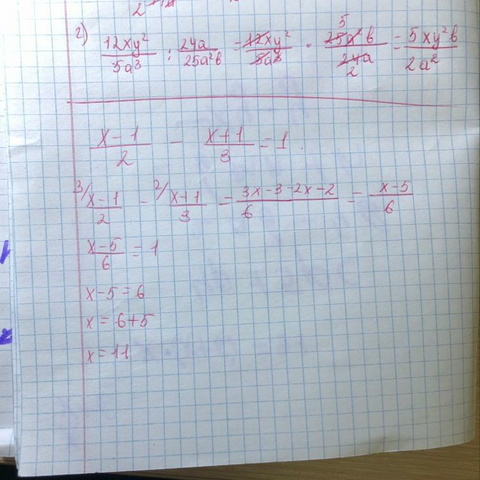 г) 12xy²/5a³ : 24a/25a²b = 12xy²/5a³ · 25a²b/24a = 5xy²b/2a²
x-1/2 - x+1/3 = 1.
3/ x-1/2 - 2/ x+1/3 = 3x-3-2x-2/6 = x-5/6
x-5/6 = 1
x-5=6
x=6+5
x=11